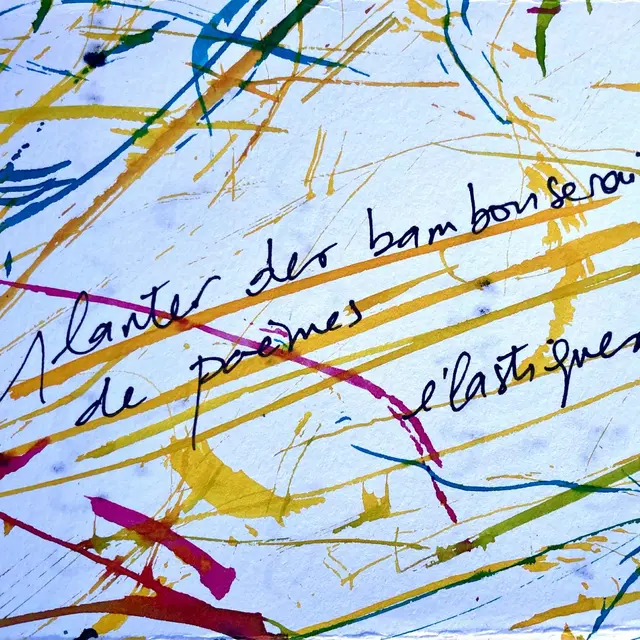 Planter des bambouserai
de poèmes élastiques